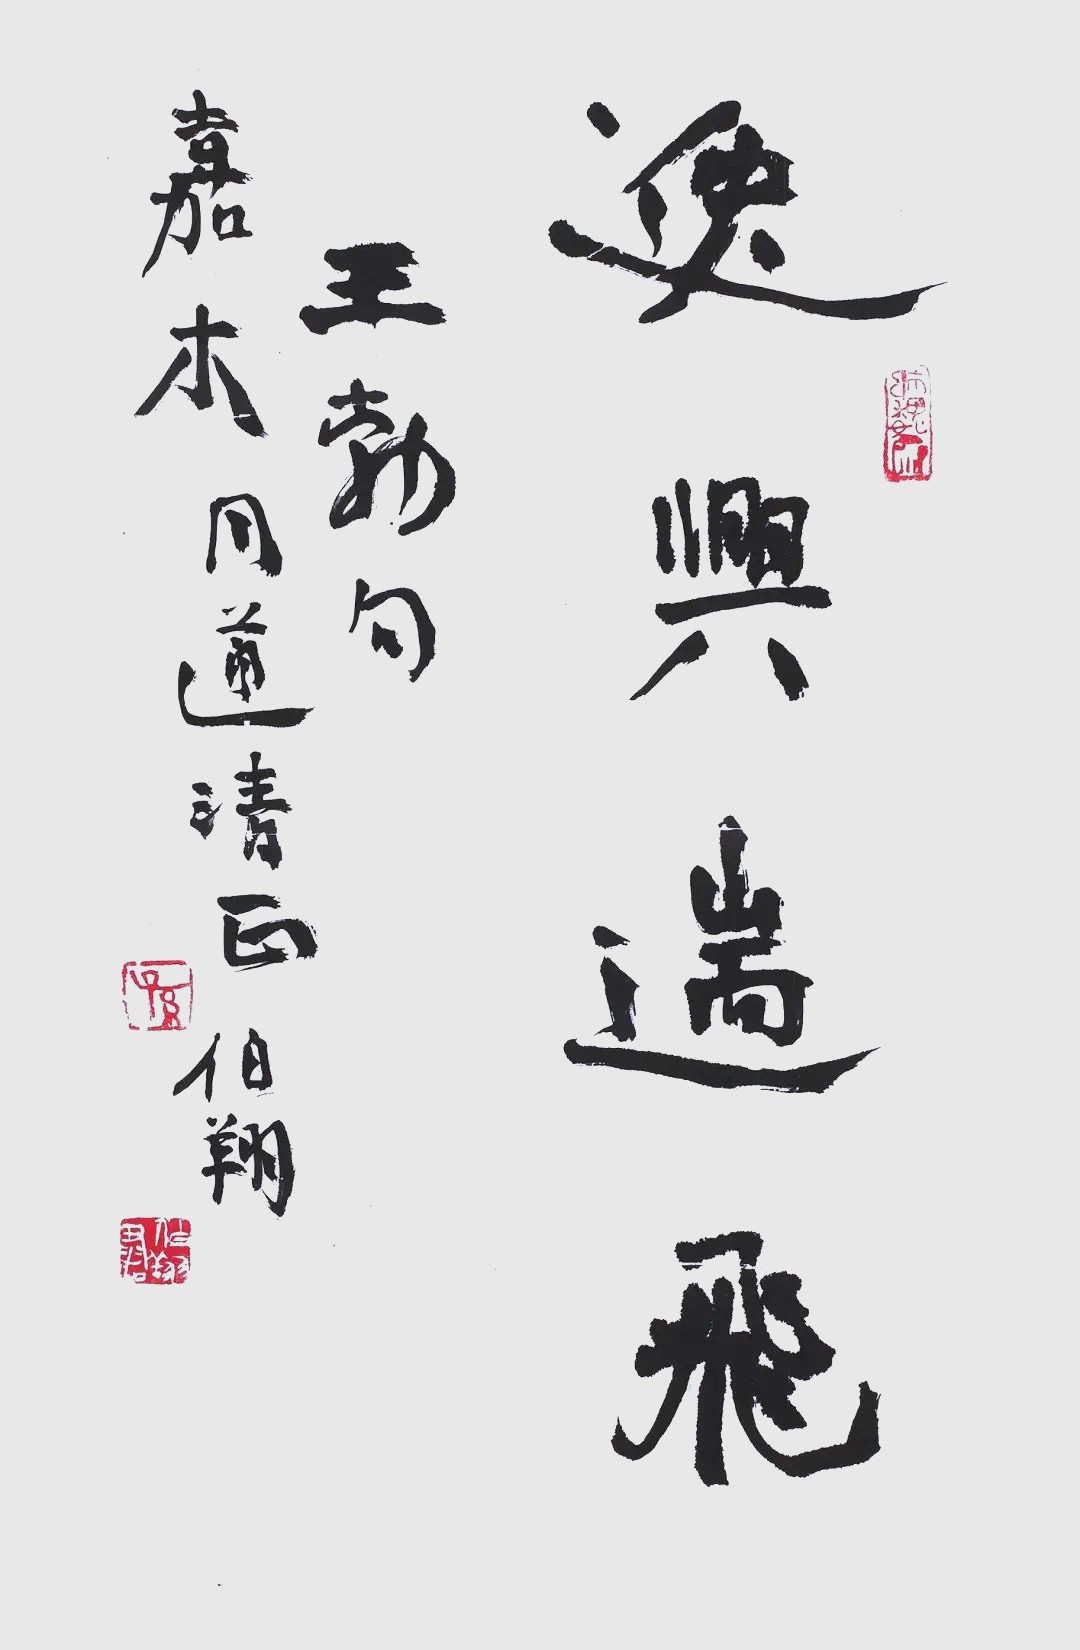 逸興遄飛
王勃句
嘉木同道清正
伯翔